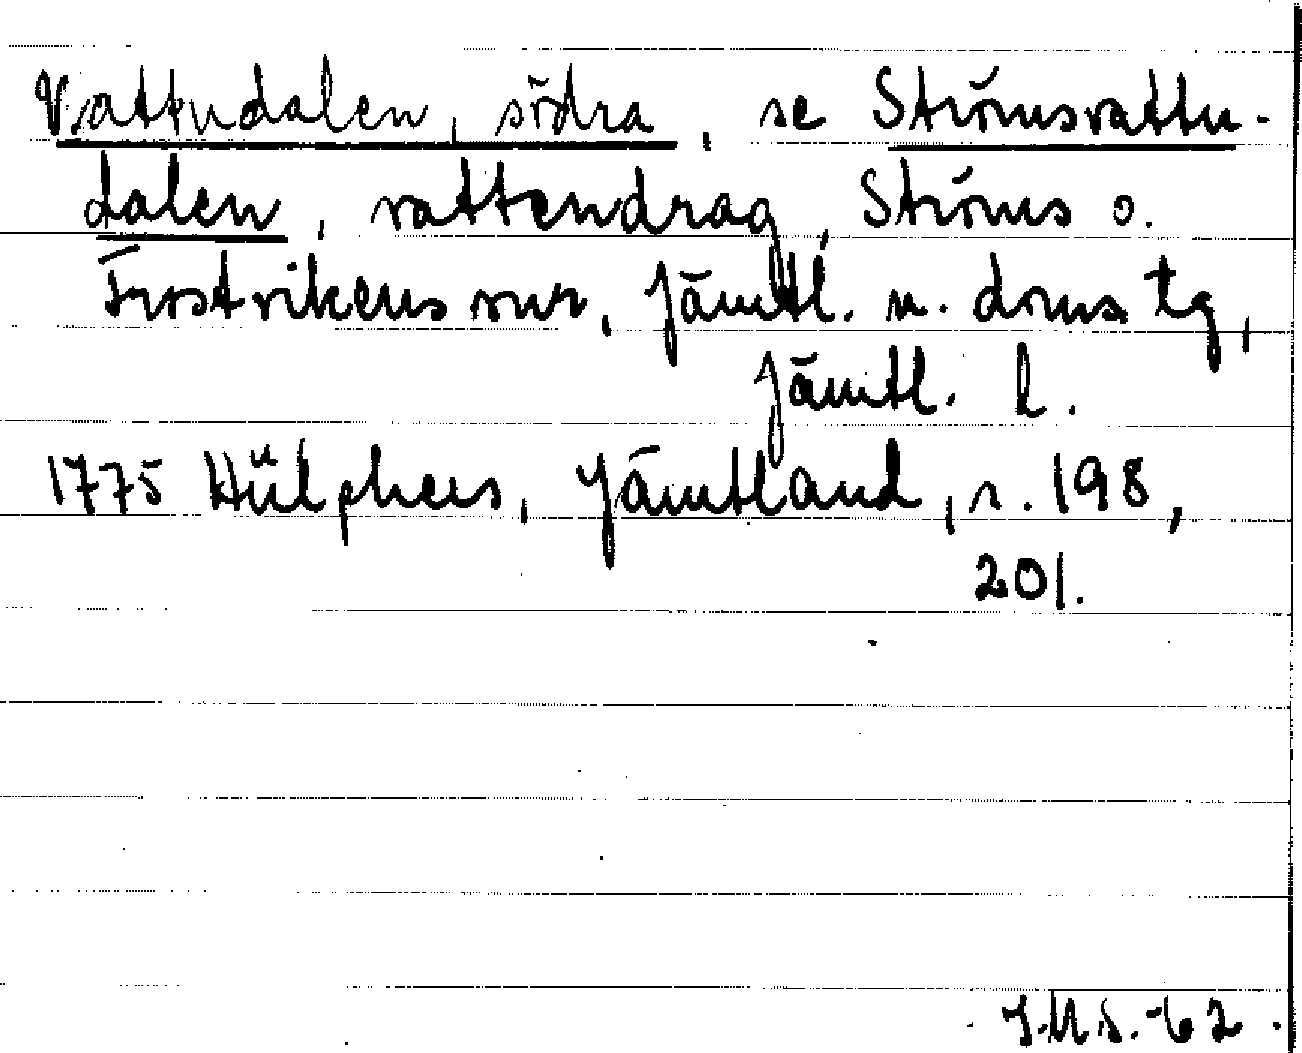 Vattudalen, södra, se Strömsvattu-
dalen, vattendrag, Ströms o.
Frostvikens snr, Jämtl. n. doms tg,
Jämtl. l.
1775 Hülphers, Jämtland, s. 198,
201.
J.M.S.-62.